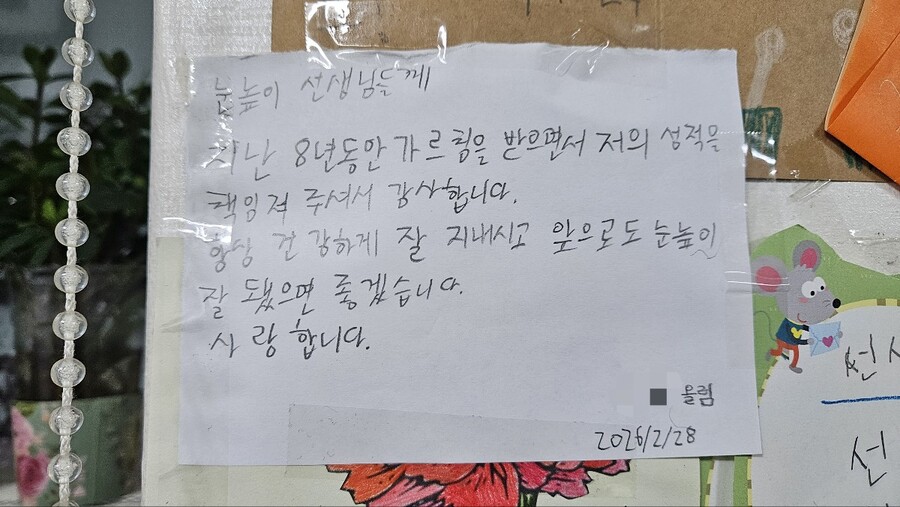 눈높이 선생님들께
지난 8년동안 가르침을 받으면서 저의 성적을
책임져 주셔서 감사합니다.
항상 건강하게 잘 지내시고 앞으로도 눈높이
잘 됐으면 좋겠습니다.
사랑합니다.
올림
2026/2/28
썬
선